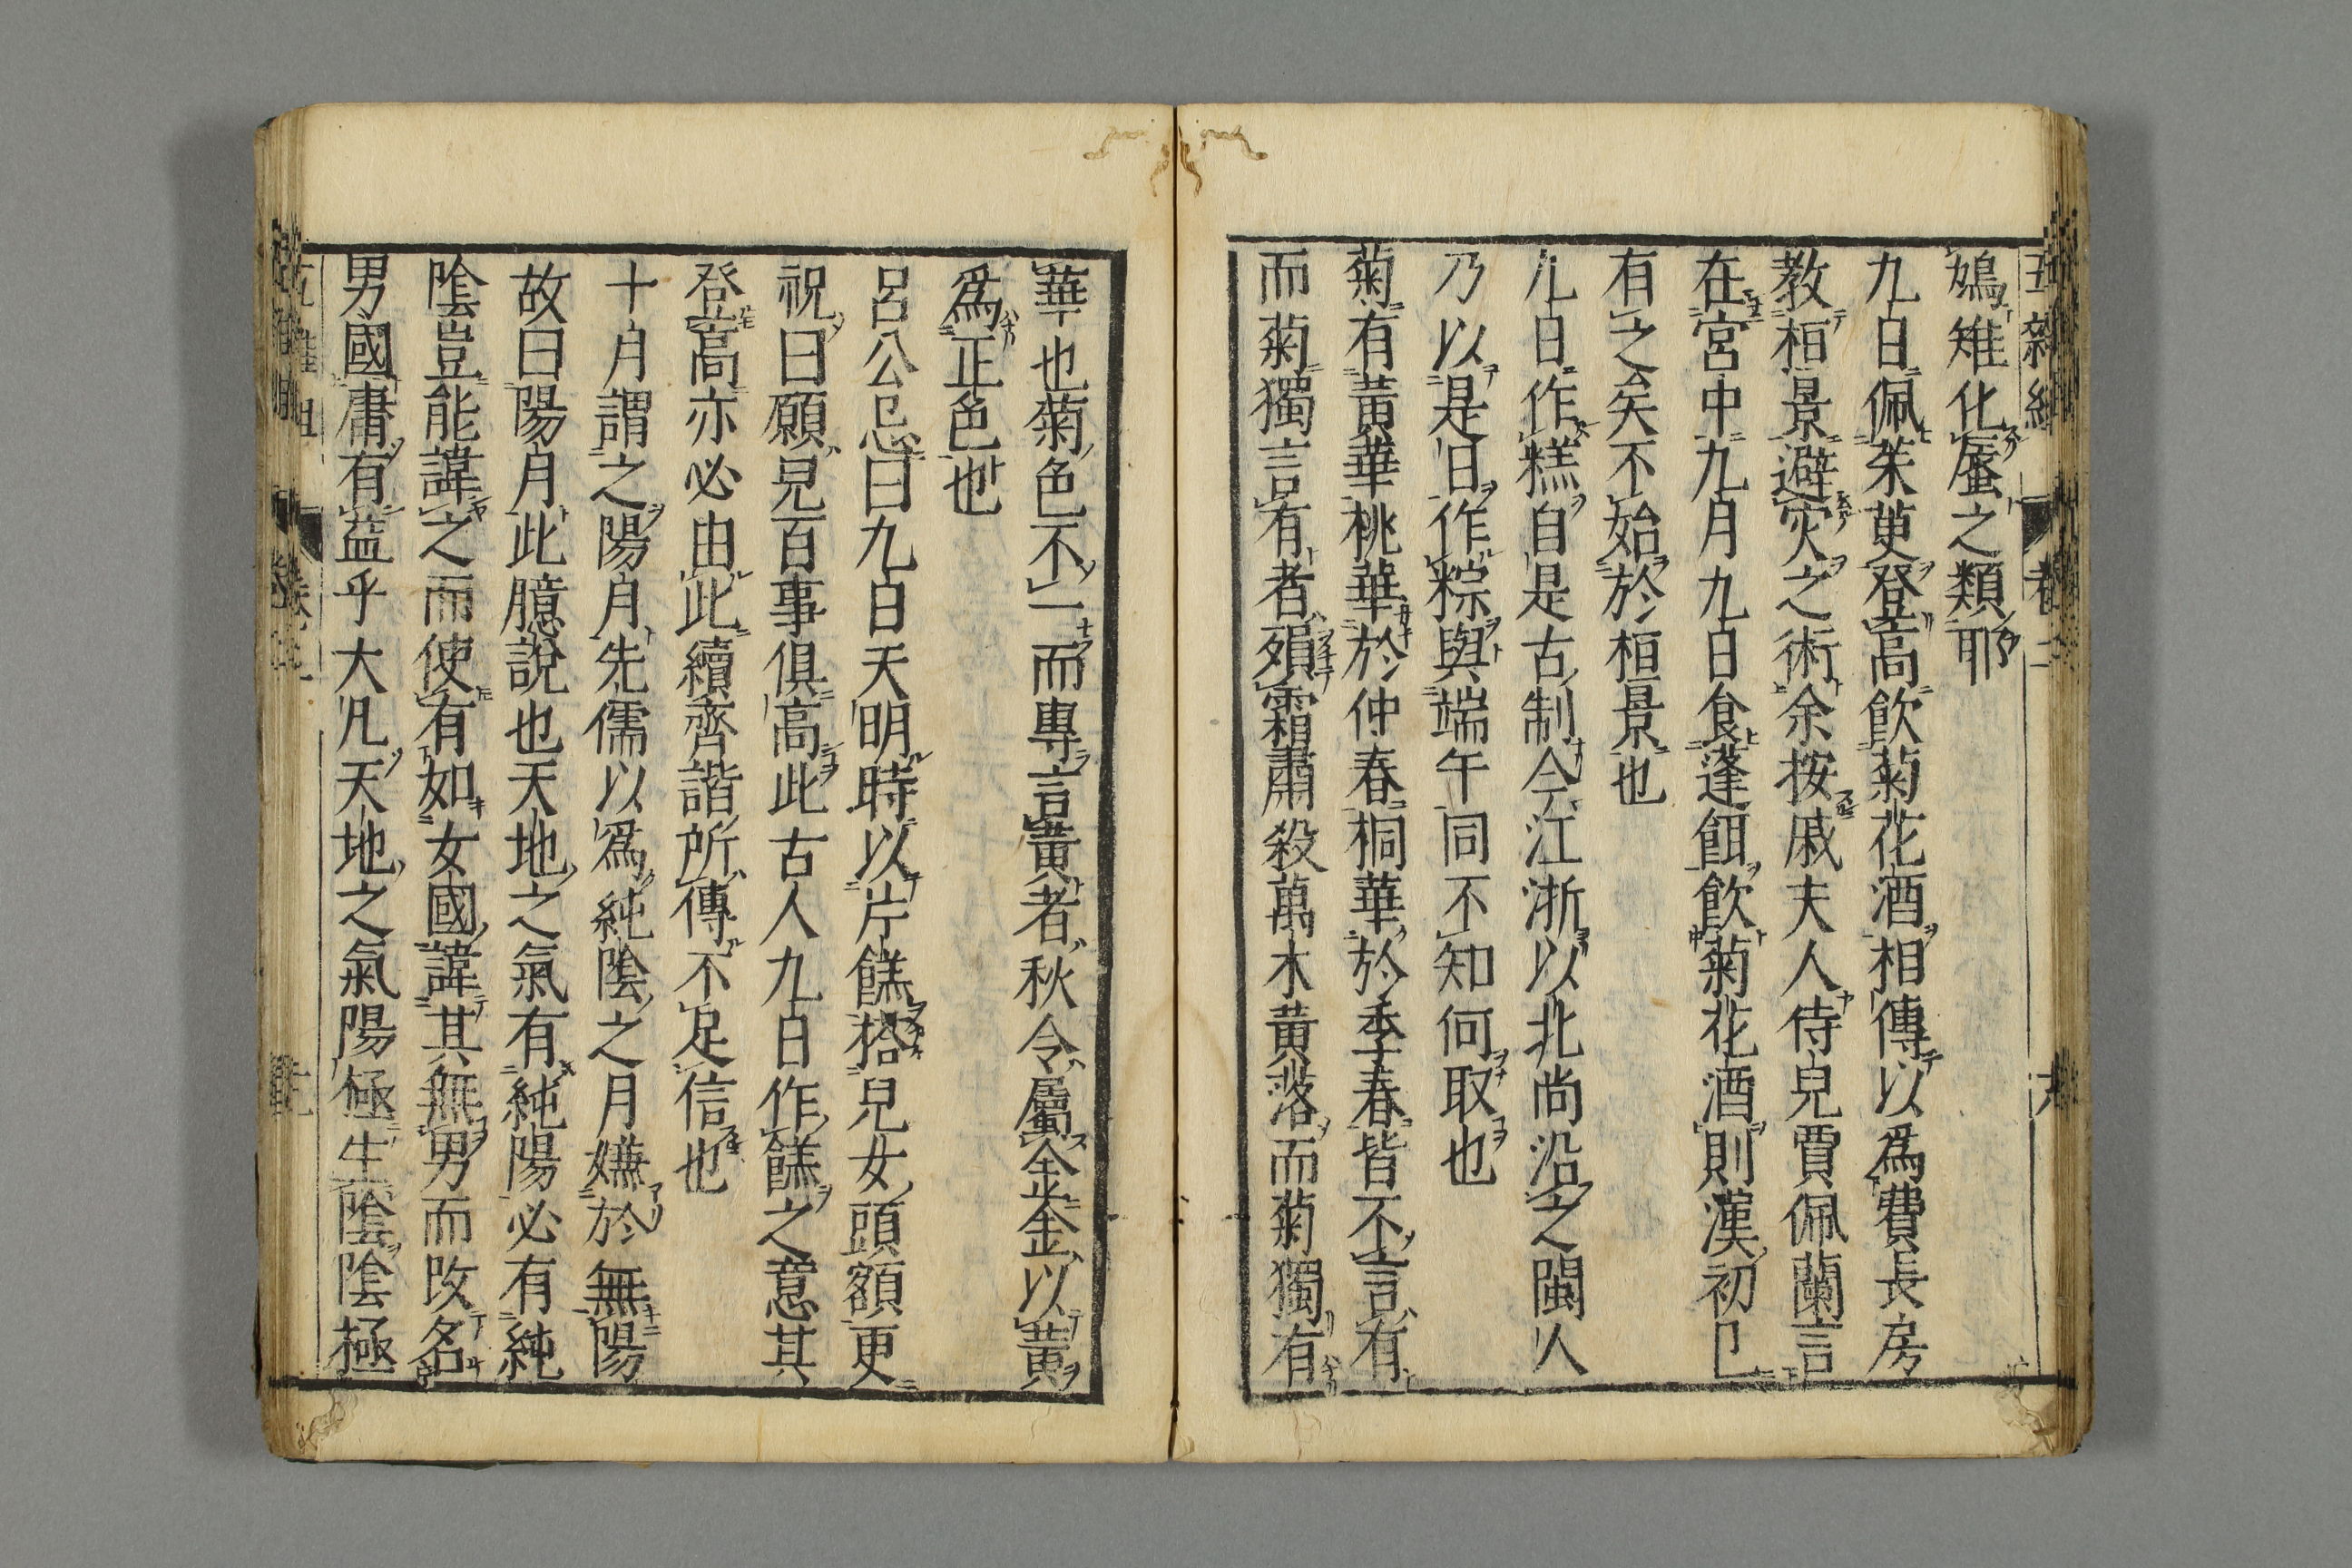 鳩雉化蜃之類耶
九日佩茱萸登高飲菊花酒相傳以為費長房
教桓景避灾之術余按戚夫人侍兒賈佩蘭言
在宮中九月九日食蓬餌飲菊花酒則漢初已
有之矣不始於桓景也
九日作糕自是古制今江浙以北尚沿之閩人
乃以是日作粽與端午同不知何取也
菊有黃華桃華於仲春桐華於季春皆不言有
而菊獨言有者殞霜肅殺萬木黃落而菊獨有
華也菊色不一而專言黃者秋令屬金金以黃
為正色也
呂公忌曰九日天明時以片餻搭兒女頭額更
祝曰願兒百事俱高此古人九日作餻之意其
登高亦必由此續齊諧所傳不足信也
十月謂之陽月先儒以為純陰之月嫌於無陽
故曰陽月此臆說也天地之氣有純陽必有純
陰豈能諱之而使有如女國諱其無男而改名
男國庸有益乎大凡天地之氣陽極生陰陰極